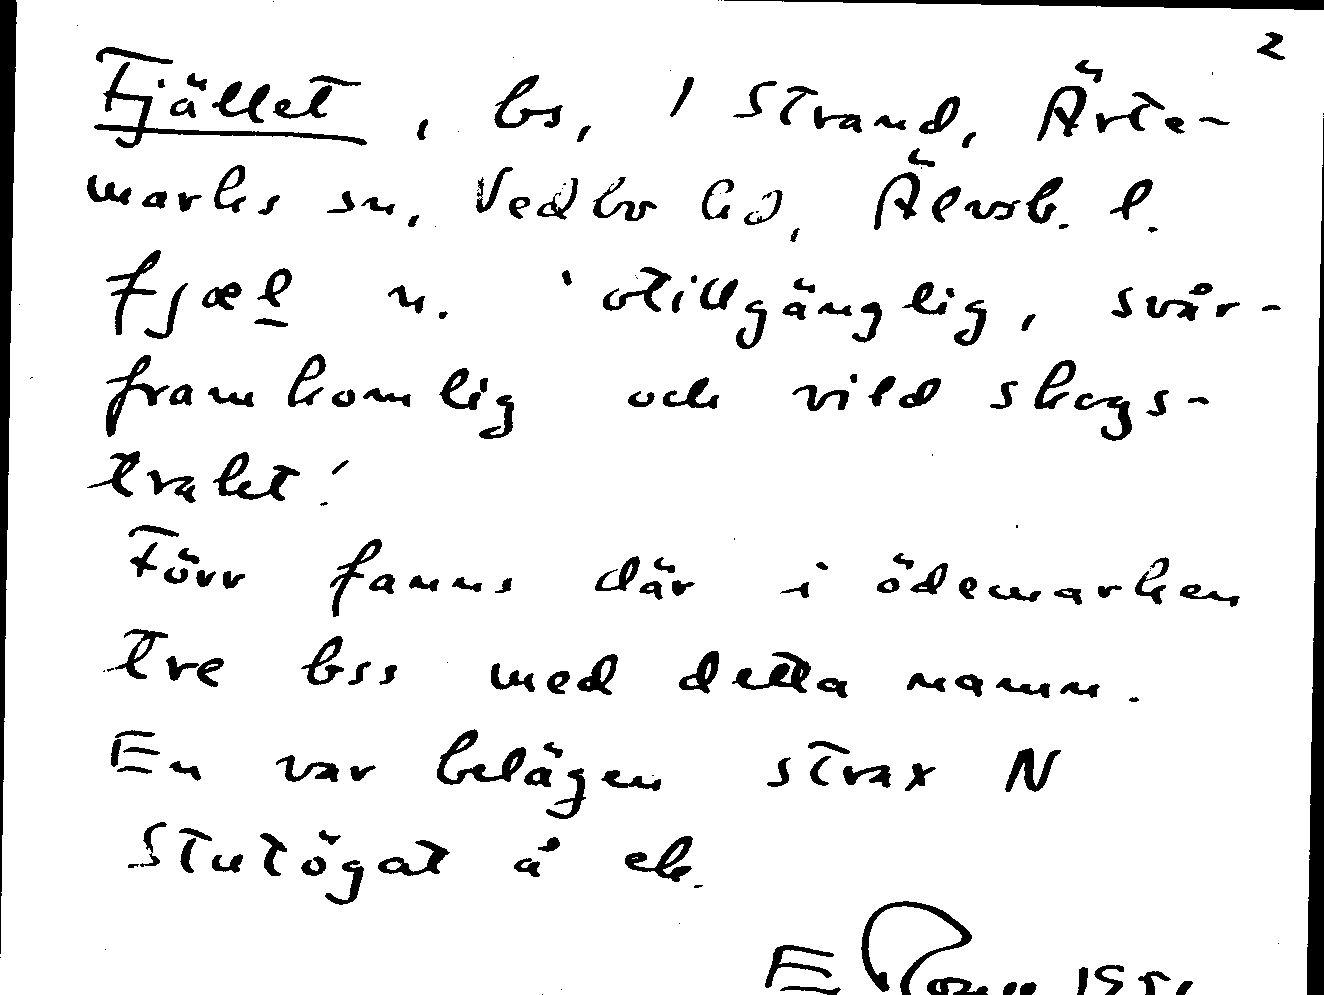 2
Fjället, bs, 1 Strand, Ärte-
marks sn, Vedbo hd, Älvsb. l.
fjæl n. 'otillgänglig, svår-
framkomlig och vild skogs-
trakt'.
Förr fanns där i ödemarken
tre bss med detta namn.
En var belägen strax N
Stutögat å ek.
E